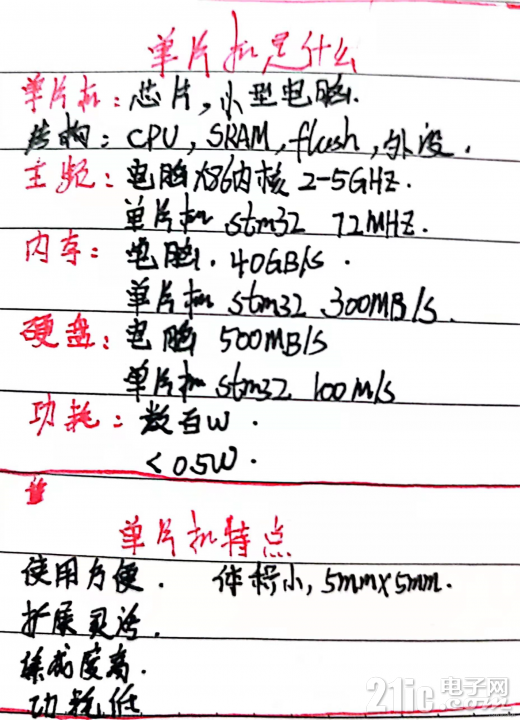 单片机是什么
单片机：芯片，小型电脑.
结构：CPU, SRAM, flash, 外设.
主频：电脑 X86内核 2-5GHZ.
单片机 stm32 72MHZ.
内存：电脑. 40GB/s.
单片机 stm32 300MB/s.
硬盘：电脑 500MB/s
单片机 stm32 100M/s
功耗：数百W.
<0.5W.
单片机特点
使用方便. 体积小, 5mm×5mm.
扩展灵活.
集成度高.
功耗低
21ic 电子网